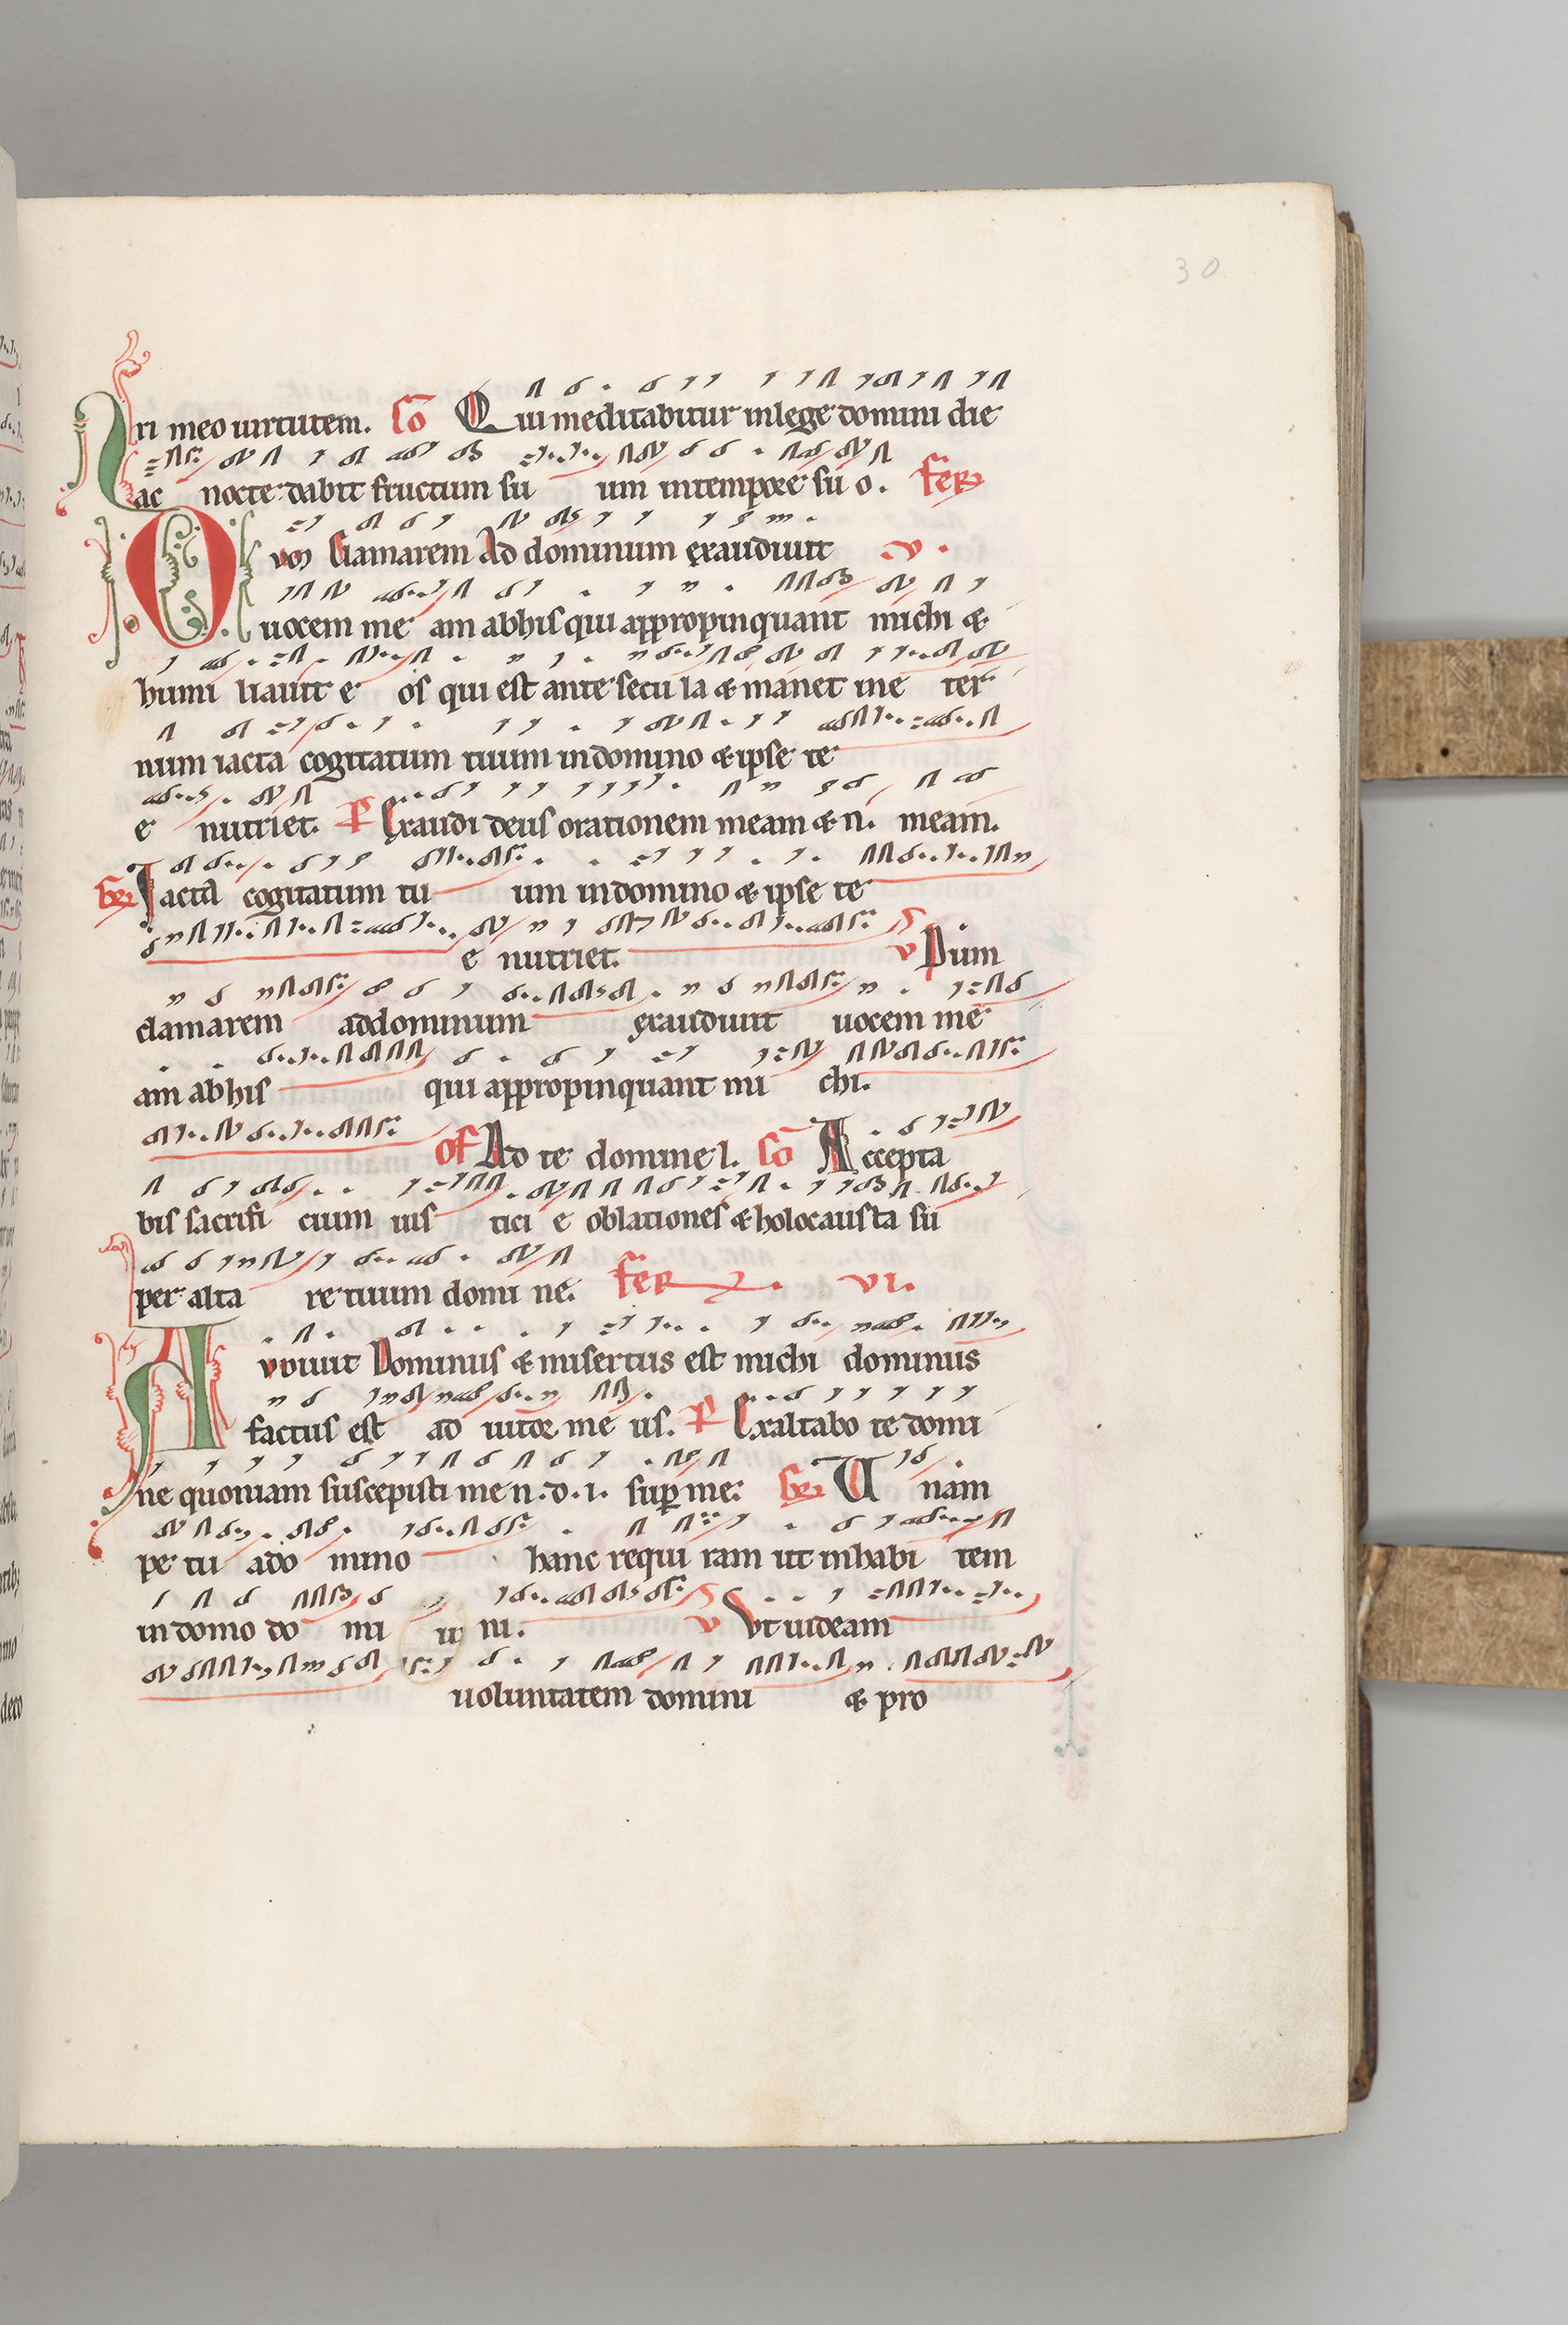 30
ri meo uirtutem. Co Qui meditabitur in lege domini die
ac nocte dabit fructum su um in tempore su o. fer
Dum clamarem Ad dominum exaudiuit v.
uocem me am ab his qui appropinquant michi &
humi liauit e os qui est ante secu la & manet in e ter
num iacta cogitatum tuum in domino & ipse te
e nutriet. Ps Exaudi deus orationem meam & n. meam.
Gr Iacta cogitatum tu um in domino & ipse te
e nutriet. v Dum
clamarem ad dominum exaudiuit uocem me
am ab his qui appropinquant mi chi.
Of Ad te domine l. Co Accepta
bis sacrifi cium ius tici e oblationes & holocausta su
per alta re tuum domi ne. fer vi.
Audiuit Dominus & misertus est michi dominus
factus est ad iutor me us. Ps Exaltabo te domi
ne quoniam suscepisti me n. d. i. sup me. Gr U nam
pe tii a do mino hanc requi ram ut inhabi tem
in domo do mi ni. v Vt uideam
uoluntatem domini & pro